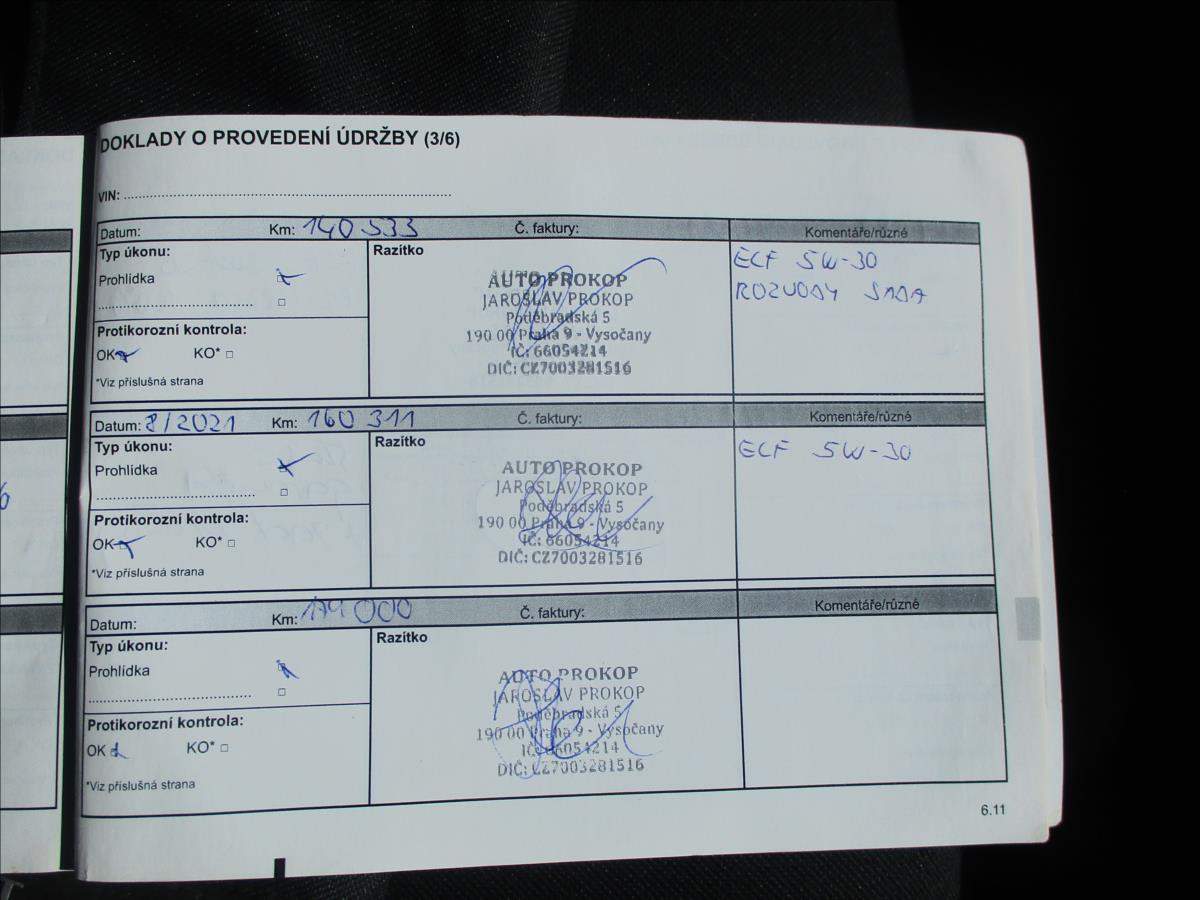 DOKLADY O PROVEDENÍ ÚDRŽBY (3/6)
VIN: ........................................................................
Datum: Km: 140 533 Č. faktury: Komentáře/různé
Typ úkonu: Razítko ELF 5W-30
Prohlídka ROZVODY SADA
AUTO PROKOP
JAROSLAV PROKOP
Poděbradská 5
190 00 Praha 9 - Vysočany
IČ: 66054214
DIČ: CZ7003281516
Protikorozní kontrola:
OK KO*
*Viz příslušná strana
Datum: 8/2021 Km: 160 311 Č. faktury: Komentáře/různé
Typ úkonu: Razítko ELF 5W-30
Prohlídka
AUTO PROKOP
JAROSLAV PROKOP
Poděbradská 5
190 00 Praha 9 - Vysočany
IČ: 66054214
DIČ: CZ7003281516
Protikorozní kontrola:
OK KO*
*Viz příslušná strana
Datum: Km: 179 000 Č. faktury: Komentáře/různé
Typ úkonu: Razítko
Prohlídka
AUTO PROKOP
JAROSLAV PROKOP
Poděbradská 5
190 00 Praha 9 - Vysočany
IČ: 66054214
DIČ: CZ7003281516
Protikorozní kontrola:
OK KO*
*Viz příslušná strana
6.11